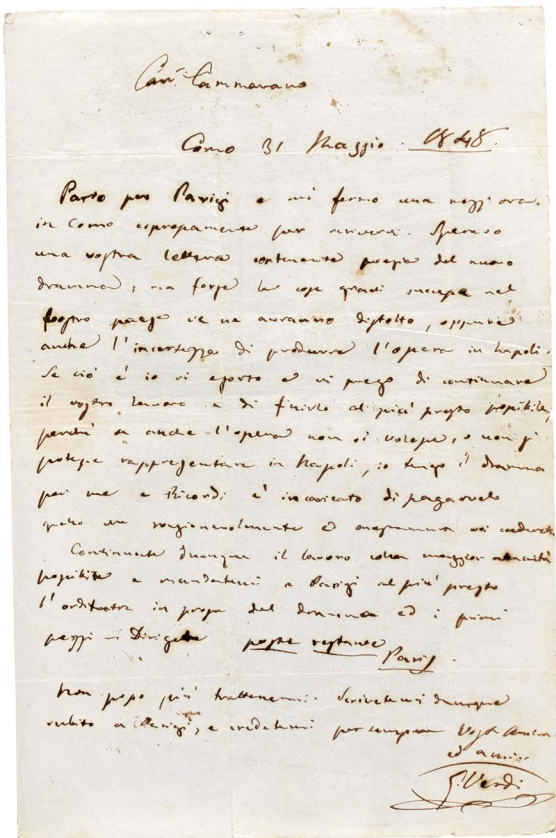 Car. Cammarano
Como 31 Maggio. 1848.
Parto per Parigi e mi fermo una mezz'ora
in Como espressamente per scrivervi. Speravo
una vostra lettera contenente poesia del nuovo
dramma; ma forse le cose gravi successe nel
vostro paese ve ne avranno distolto, oppure
anche l'incertezza di produrre l'opera in Napoli.
Se ciò è io vi esorto e vi prego di continuare
il vostro lavoro e di finirlo al più presto possibile,
perchè se anche l'opera non si volesse, o non si
potesse rappresentare in Napoli, io tengo il dramma
per me e Ricordi è incaricato di pagarvelo
quello che ragionevolmente ed onestamente voi crederete
Continuate dunque il lavoro colla maggior
possibile e mandatemi a Parigi al più presto
l'orditura in prosa del dramma ed i primi
pezzi Dirigete poste restante
Paris.
Non posso più trattenermi. Scrivetemi dunque
subito a Parigi, e credetemi per sempre Vost.
ed amico
G. Verdi